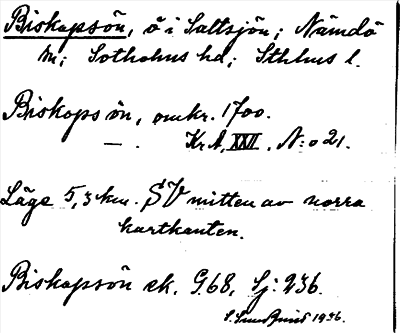 Biskopsön, ö i Saltsjön; Nämdö
sn; Sotholms hd; Sthlms l.
Biskopsön, omkr. 1700.
— . Kr A, XXVI, N:o 21.
Läge 5,3 km. SV mitten av norra
kartkanten.
Biskopsön ek. G.68, Sj: 236.
S. Sundquist 1936.